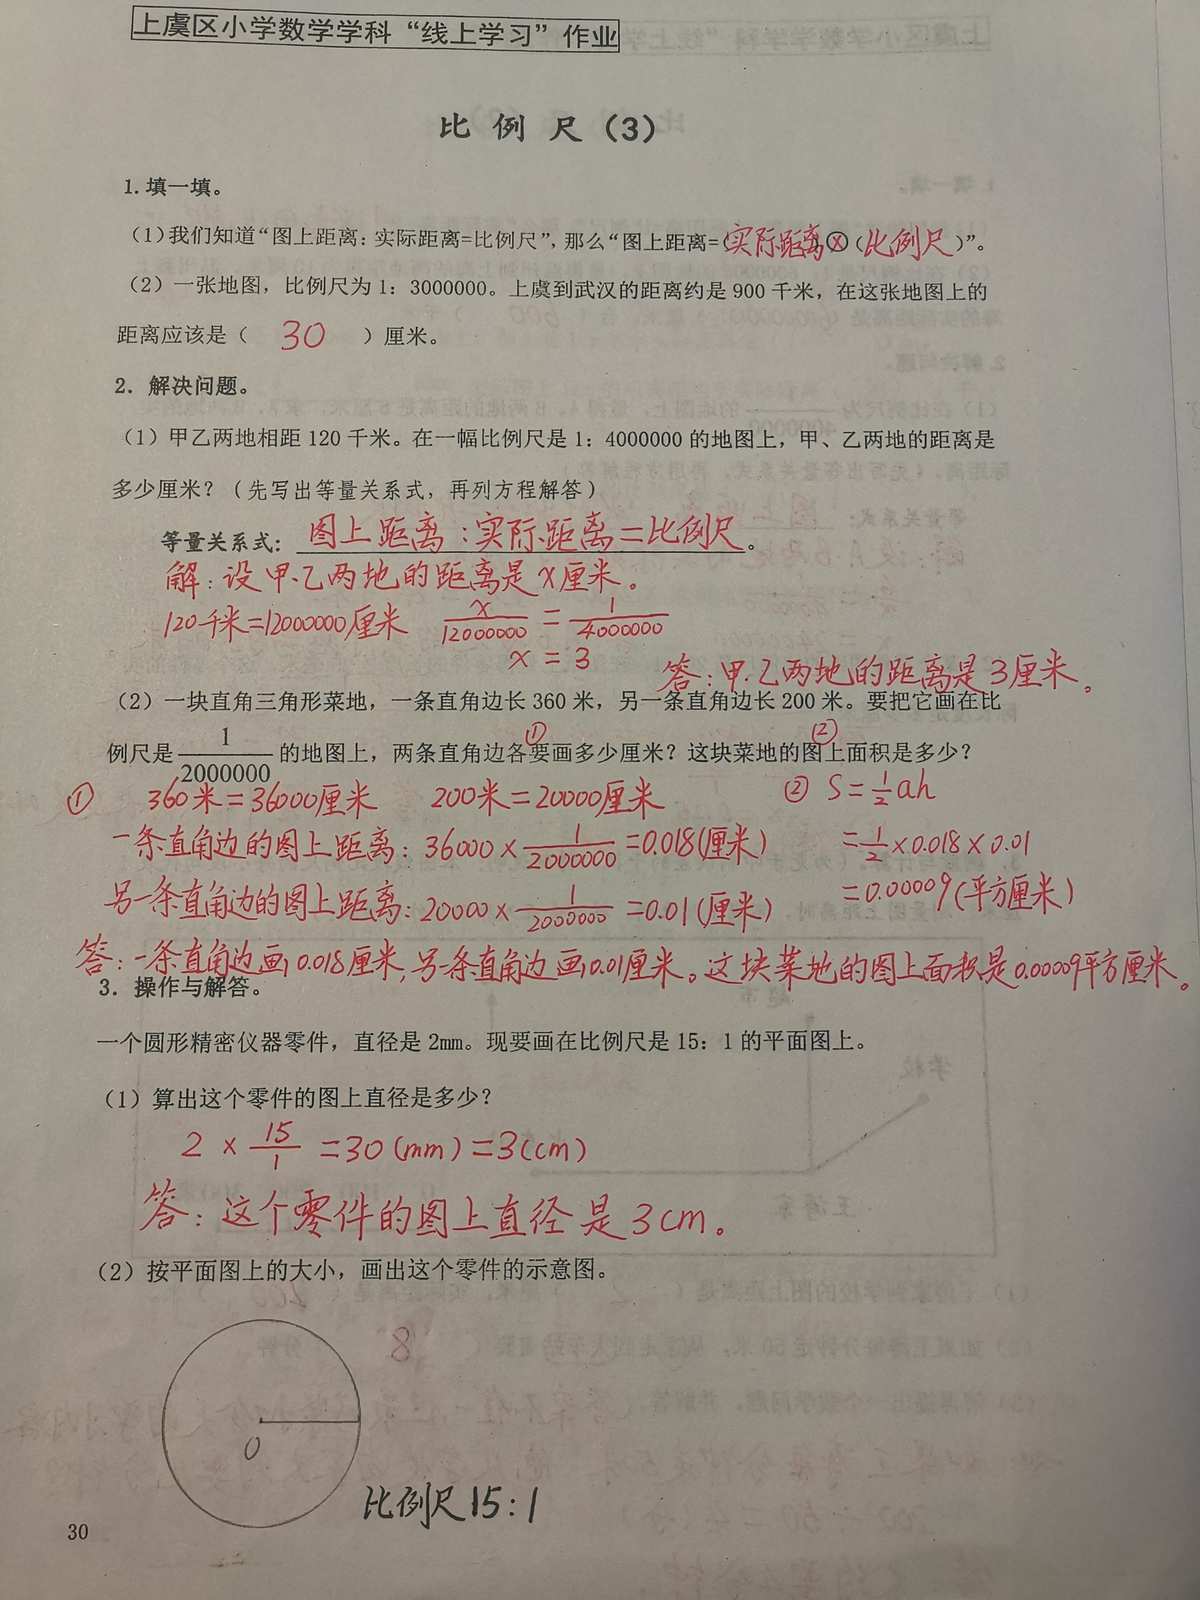 上虞区小学数学学科“线上学习”作业
比 例 尺（3）
1.填一填。
（1）我们知道“图上距离：实际距离=比例尺”，那么“图上距离=（实际距离）⊗（比例尺）”。
（2）一张地图，比例尺为 1：3000000。上虞到武汉的距离约是 900 千米，在这张地图上的
距离应该是（ 30 ）厘米。
2．解决问题。
（1）甲乙两地相距 120 千米。在一幅比例尺是 1：4000000 的地图上，甲、乙两地的距离是
多少厘米？（先写出等量关系式，再列方程解答）
等量关系式：图上距离：实际距离=比例尺。
解：设甲、乙两地的距离是x厘米。
120千米=12000000厘米 x/12000000 = 1/4000000
x = 3
答：甲、乙两地的距离是3厘米。
（2）一块直角三角形菜地，一条直角边长 360 米，另一条直角边长 200 米。要把它画在比
① ②
例尺是 1/2000000 的地图上，两条直角边各要画多少厘米？这块菜地的图上面积是多少？
① 360米=36000厘米 200米=20000厘米 ② S=1/2ah
一条直角边的图上距离：36000×1/2000000=0.018(厘米) =1/2×0.018×0.01
另一条直角边的图上距离：20000×1/2000000=0.01(厘米) =0.00009(平方厘米)
答：一条直角边画0.018厘米，另一条直角边画0.01厘米。这块菜地的图上面积是0.00009平方厘米。
3．操作与解答。
一个圆形精密仪器零件，直径是 2mm。现要画在比例尺是 15：1 的平面图上。
（1）算出这个零件的图上直径是多少？
2 × 15/1 =30(mm)=3(cm)
答：这个零件的图上直径是3cm。
（2）按平面图上的大小，画出这个零件的示意图。
O
比例尺15:1
30